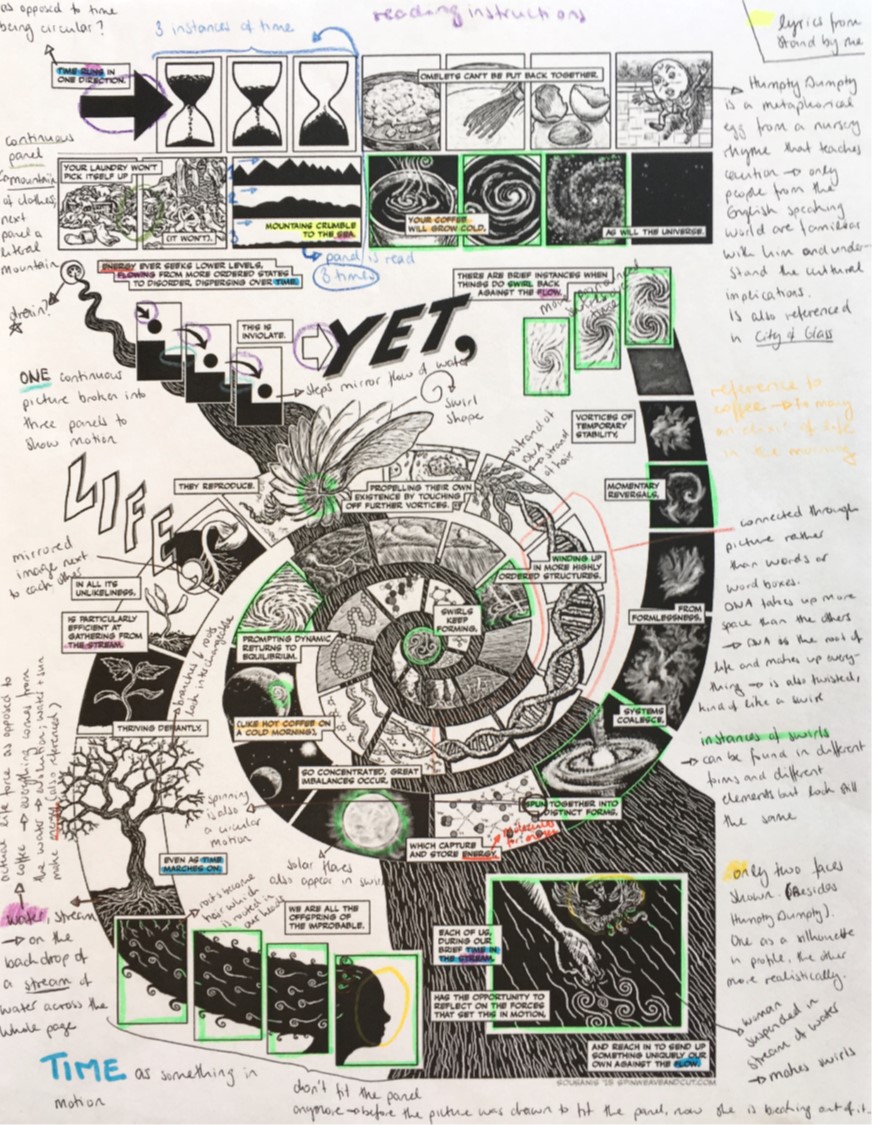 as opposed to time
being circular?
3 instances of time
reading instructions
lyrics from
Stand by me
TIME RUNS IN
ONE DIRECTION.
OMELETS CAN'T BE PUT BACK TOGETHER.
Humpty Dumpty
is a metaphorical
egg from a nursery
rhyme that teaches
caution → only
people from the
English speaking
world are familiar
with him and under-
stand the cultural
implications.
Is also referenced
in City of Glass
continuous
panel
mountain
of clothes,
next
panel a
literal
mountain
YOUR LAUNDRY WON'T
PICK ITSELF UP
(IT WON'T).
1
2
3
MOUNTAINS CRUMBLE
TO THE SEA.
YOUR COFFEE
WILL GROW COLD,
AS WILL THE UNIVERSE.
panel is read
3 times
drain?
ENERGY EVER SEEKS LOWER LEVELS,
FLOWING FROM MORE ORDERED STATES
TO DISORDER, DISPERSING OVER TIME.
THIS IS
INVIOLATE.
YET,
THERE ARE BRIEF INSTANCES WHEN
THINGS DO SWIRL BACK
AGAINST THE FLOW.
ONE continuous
picture broken into
three panels to
show motion
steps mirror flow of water
swirl
shape
reference to
coffee → to many
an elixir of life
in the morning
VORTICES OF
TEMPORARY
STABILITY.
strand of
DNA
→ strand
of hair
LIFE
THEY REPRODUCE.
PROPELLING THEIR OWN
EXISTENCE BY TOUCHING
OFF FURTHER VORTICES.
MOMENTARY
REVERSALS,
mirrored
image next
to each other
IN ALL ITS
UNLIKELINESS.
WINDING UP
IN MORE HIGHLY
ORDERED STRUCTURES.
connected through
picture rather
than words or
word boxes.
DNA takes up more
space than the others
→ DNA is the root of
life and makes up every-
thing → is also twisted,
kind of like a swirl
IS PARTICULARLY
EFFICIENT AT
GATHERING FROM
THE STREAM.
SWIRLS
KEEP
FORMING,
FROM
FORMLESSNESS.
PROMPTING DYNAMIC
RETURNS TO
EQUILIBRIUM.
branches & roots
look interchangeable
THRIVING DEFIANTLY.
(LIKE HOT COFFEE ON
A COLD MORNING).
SYSTEMS
COALESCE.
instances of swirls
→ can be found in different
forms and different
elements but look still
the same
SO CONCENTRATED, GREAT
IMBALANCES OCCUR.
SPUN TOGETHER INTO
DISTINCT FORMS.
spinning
is also
a circular
motion
WHICH CAPTURE
AND STORE ENERGY.
EVEN AS TIME
MARCHES ON.
solar flares
also appear in swirls
actual life force as opposed to
coffee → everything comes from
the water → evolution; water + sun
make energy (also referenced)
water, stream
→ on the
backdrop of
a stream of
water across the
whole page
roots become
hair which
is rooted in
our heads
WE ARE ALL THE
OFFSPRING OF
THE IMPROBABLE.
EACH OF US,
DURING OUR
BRIEF TIME IN
THE STREAM,
HAS THE OPPORTUNITY TO
REFLECT ON THE FORCES
THAT SET THIS IN MOTION,
AND REACH IN TO SEND UP
SOMETHING UNIQUELY OUR
OWN AGAINST THE FLOW.
only two faces
shown. (Besides
Humpty Dumpty).
One as a silhouette
in profile, the other
more realistically.
woman
suspended in
stream of water
→ makes swirls
SOUSANIS '15 SPINWEAVEANDCUT.COM
TIME as something in
motion
don't fit the panel
anymore → before the picture was drawn to fit the panel, now she is breaking out of it.